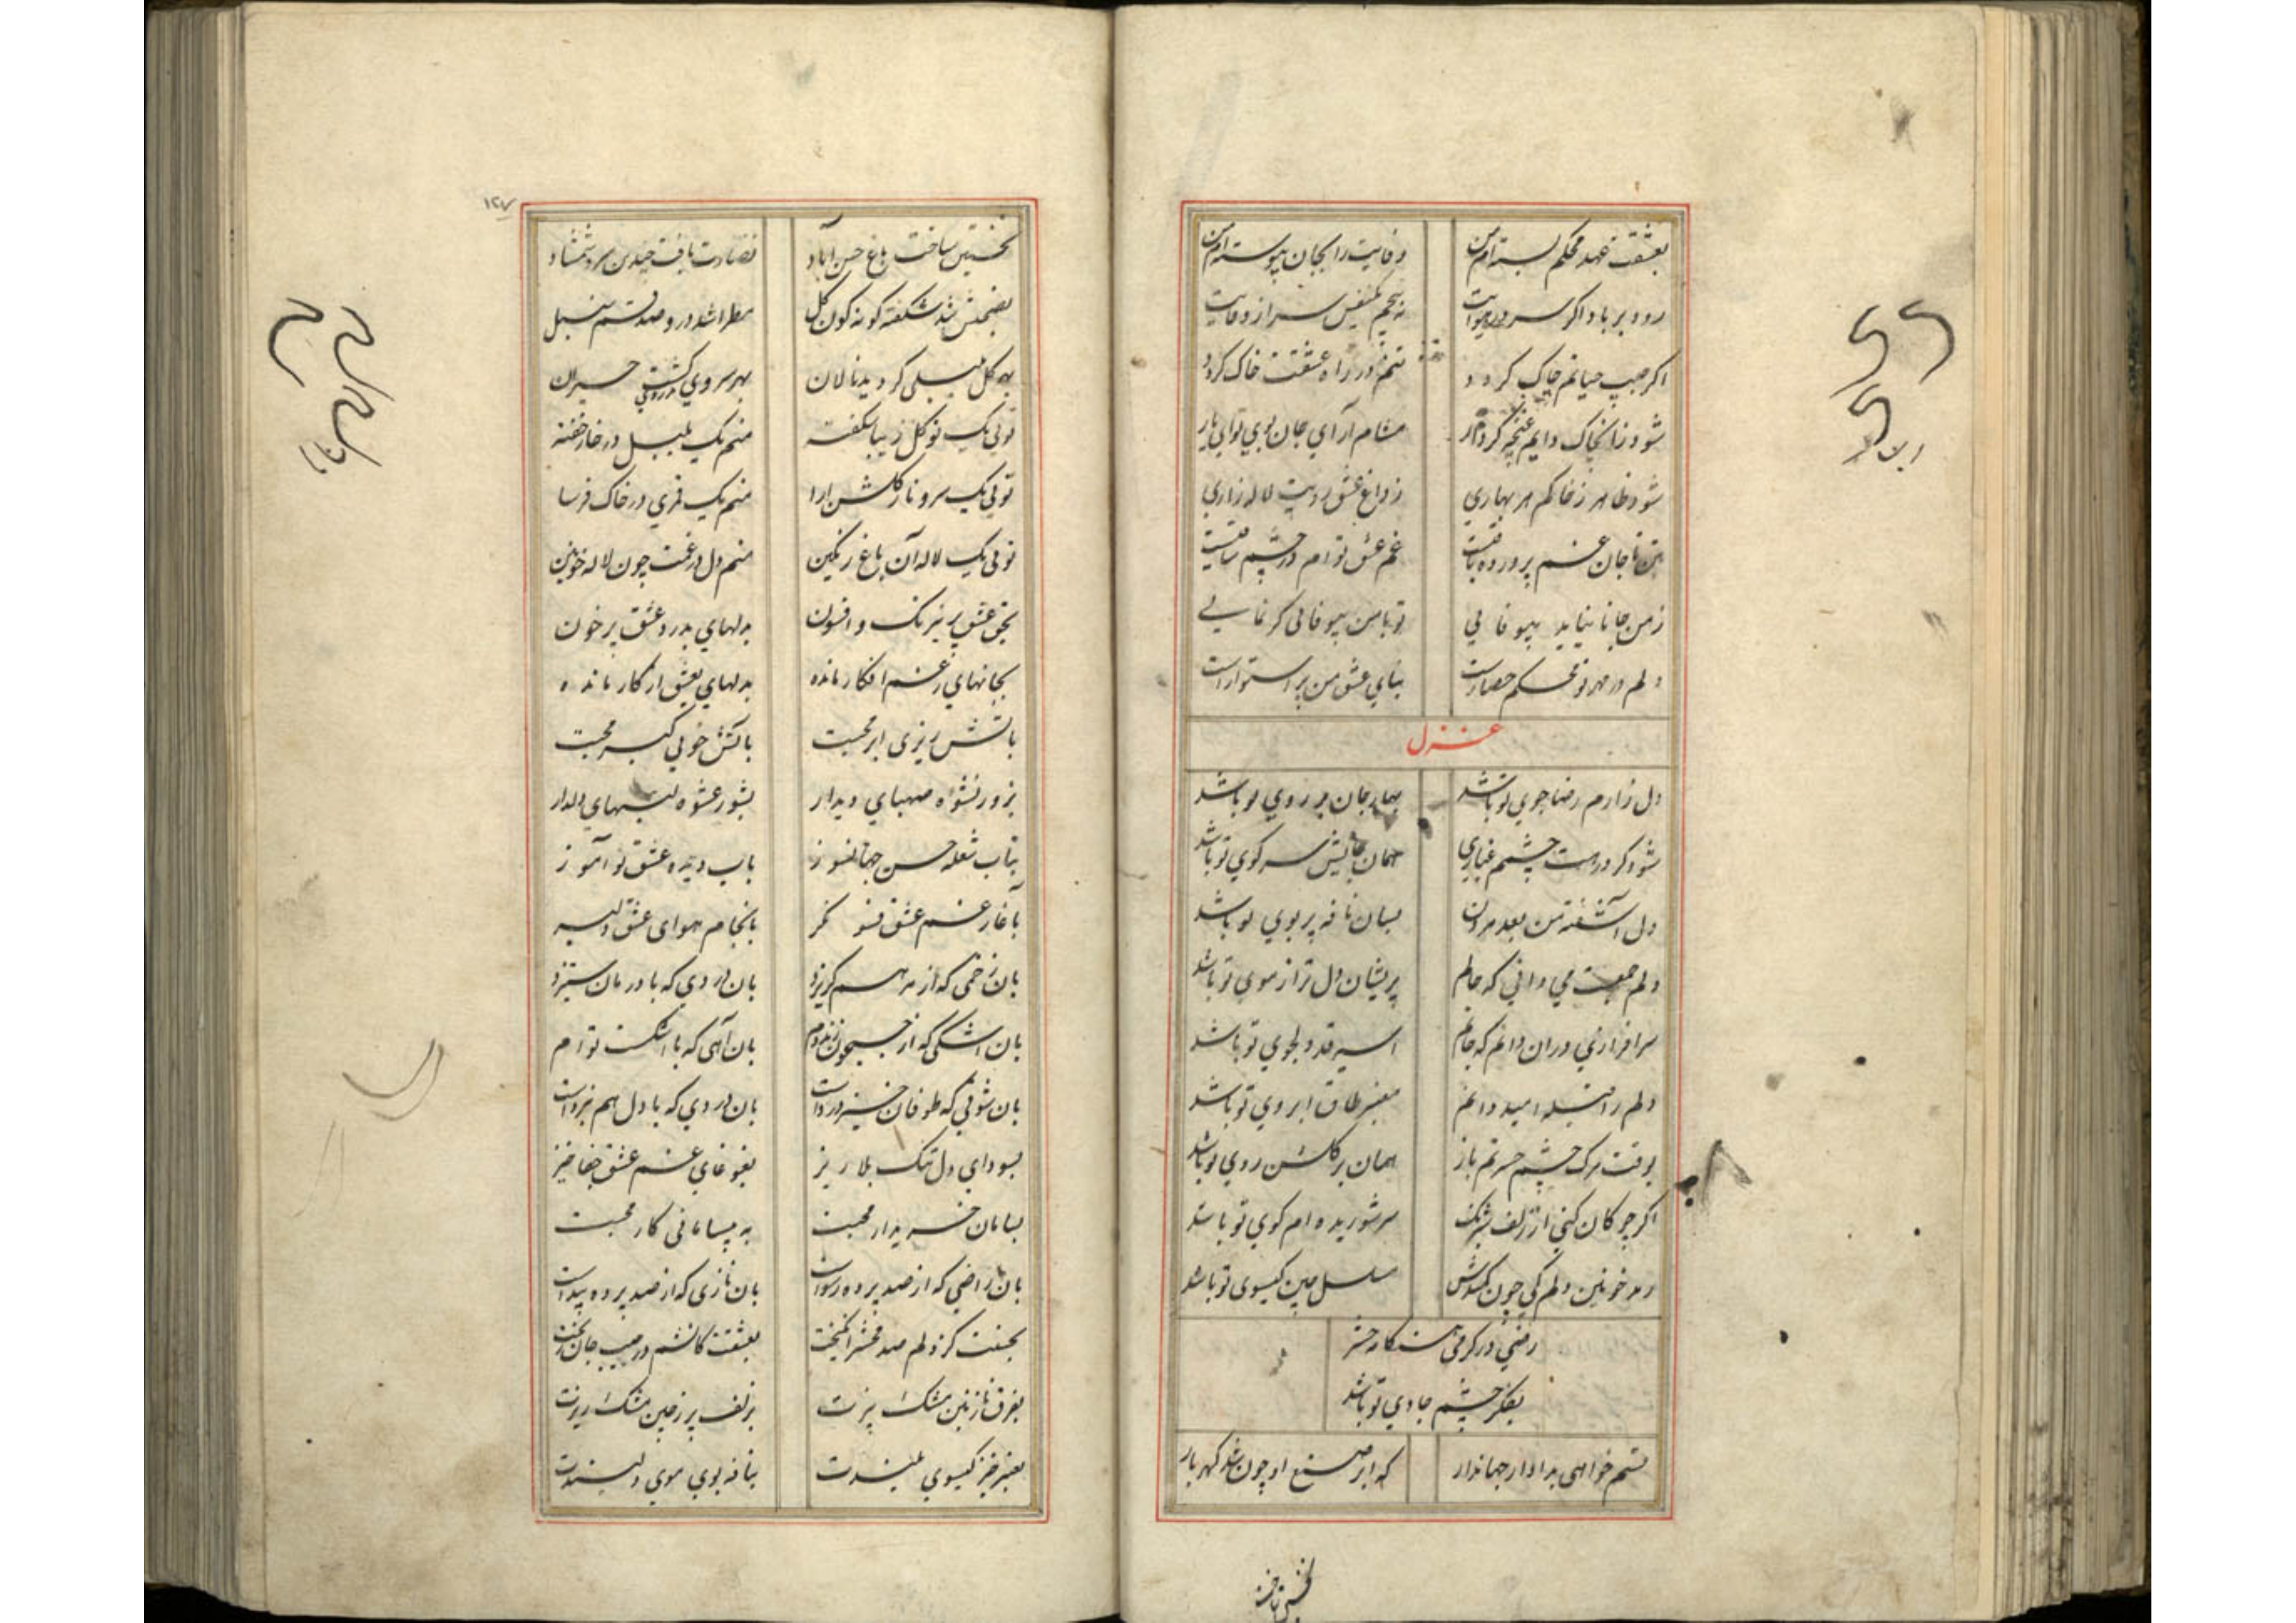 بعشقت عهد محکم بسته‌ام من وفایت را بجان پیوسته‌ام من
رود بر باد اکر سر در هوایت نه پیچم یکنفس سر از وفایت
اکر جیب حیاتم چاک کردد تنم در راه عشقت خاک کردد
شود زان خاک دایم غنچه مشام آرای جان بوی تو ای یار
شود ظاهر ز خاکم هر بهاری ز داغ عشق رویت لاله زاری
بتن تا جان غم پرورده باقیست غم عشق توام در چشم ساقیست
ز من جانا نیاید بیوفایی تو با من بیوفایی کر نمایی
دلم در مهر تو محکم حصارست بنای عشق من پر استوارست
غزل
دل زارم رضاجوی تو باشد بهار جان بر روی تو باشد
شود کر در رهت چشمم غباری همان جایش سر کوی تو باشد
دل آشفته من بعد مردن بسان نافه پر بوی تو باشد
دلم جمعیت می دانی که حالم پریشان دل تر از موی تو باشد
سرافرازی دران دانم که جانم اسیر قد دلجوی تو باشد
دلم را قبله امید دایم طاق ابروی تو باشد
بوقت مرک چشم حسرتم باز همان بر کلشن روی تو باشد
اکر چوکان کنی از زلف سر شوریده ام کوی تو باشد
دلم کی چون مسلسل چین کیسوی تو باشد
در کرمی حشر
بفکر چشم جادوی تو باشد
قسم خواهی بدادار جهاندار که ابر صنع او چون شد کهربار
۱۲۷
نخستین ساخت باغ حسن آباد نضارت یافت چندین سرو شمشاد
بضمنش شد شکفته کونه کون کل مطرا شد درو صد قسم سنبل
بهر کل بلبلی کردید نالان بهر سروی حیران
تویی یک نو کل زیبا شکفته منم یک بلبل در خار خفته
تویی یک سرو ناز کلشن ارا منم یک قمری در خاک فرسا
تویی یک لاله آن باغ رنکین منم دل در غمت چون لاله خونین
بحق عشق پر نیرنک و افسون بدلهای بدرد عشق پر خون
بجانهای ز غم افکار مانده بدلهای بعشق از کار مانده
باتش ریزی ابر محبت باتش خویی محبت
بزور نشوه صهبای دیدار بشور عشوه لبهای دلدار
بتاب شعله حسن جهانسوز باب دیده عشق نوآموز
باغاز غم عشق بانجام هوای عشق دلبر
بان زخمی که از مرهم کریزد بان دردی که با درمان ستیزد
بان اشکی که از جیحون زند دم بان آهی که با اشکست توام
بان شوقی که طوفان خیز دردست بان دردی که با دل هم نبردست
بسودای دل تنک بلا ریز بغوغای غم عشق جفا خیز
بسامان خریدار محبت به بیسامانی کار محبت
بان رازی که از صد پرده رسواست بان نازی که از صد پرده پیداست
بحسنت کز دلم صد محشر انکیخت بعشقت کاتشم در جیب جان ریخت
بفرق نازنین مشک بیزت بزلف پر ز چین مشک ریزت
بعنبر خیز کیسوی بلندت بنافه بوی موی دلپسندت
نخستین ساخت